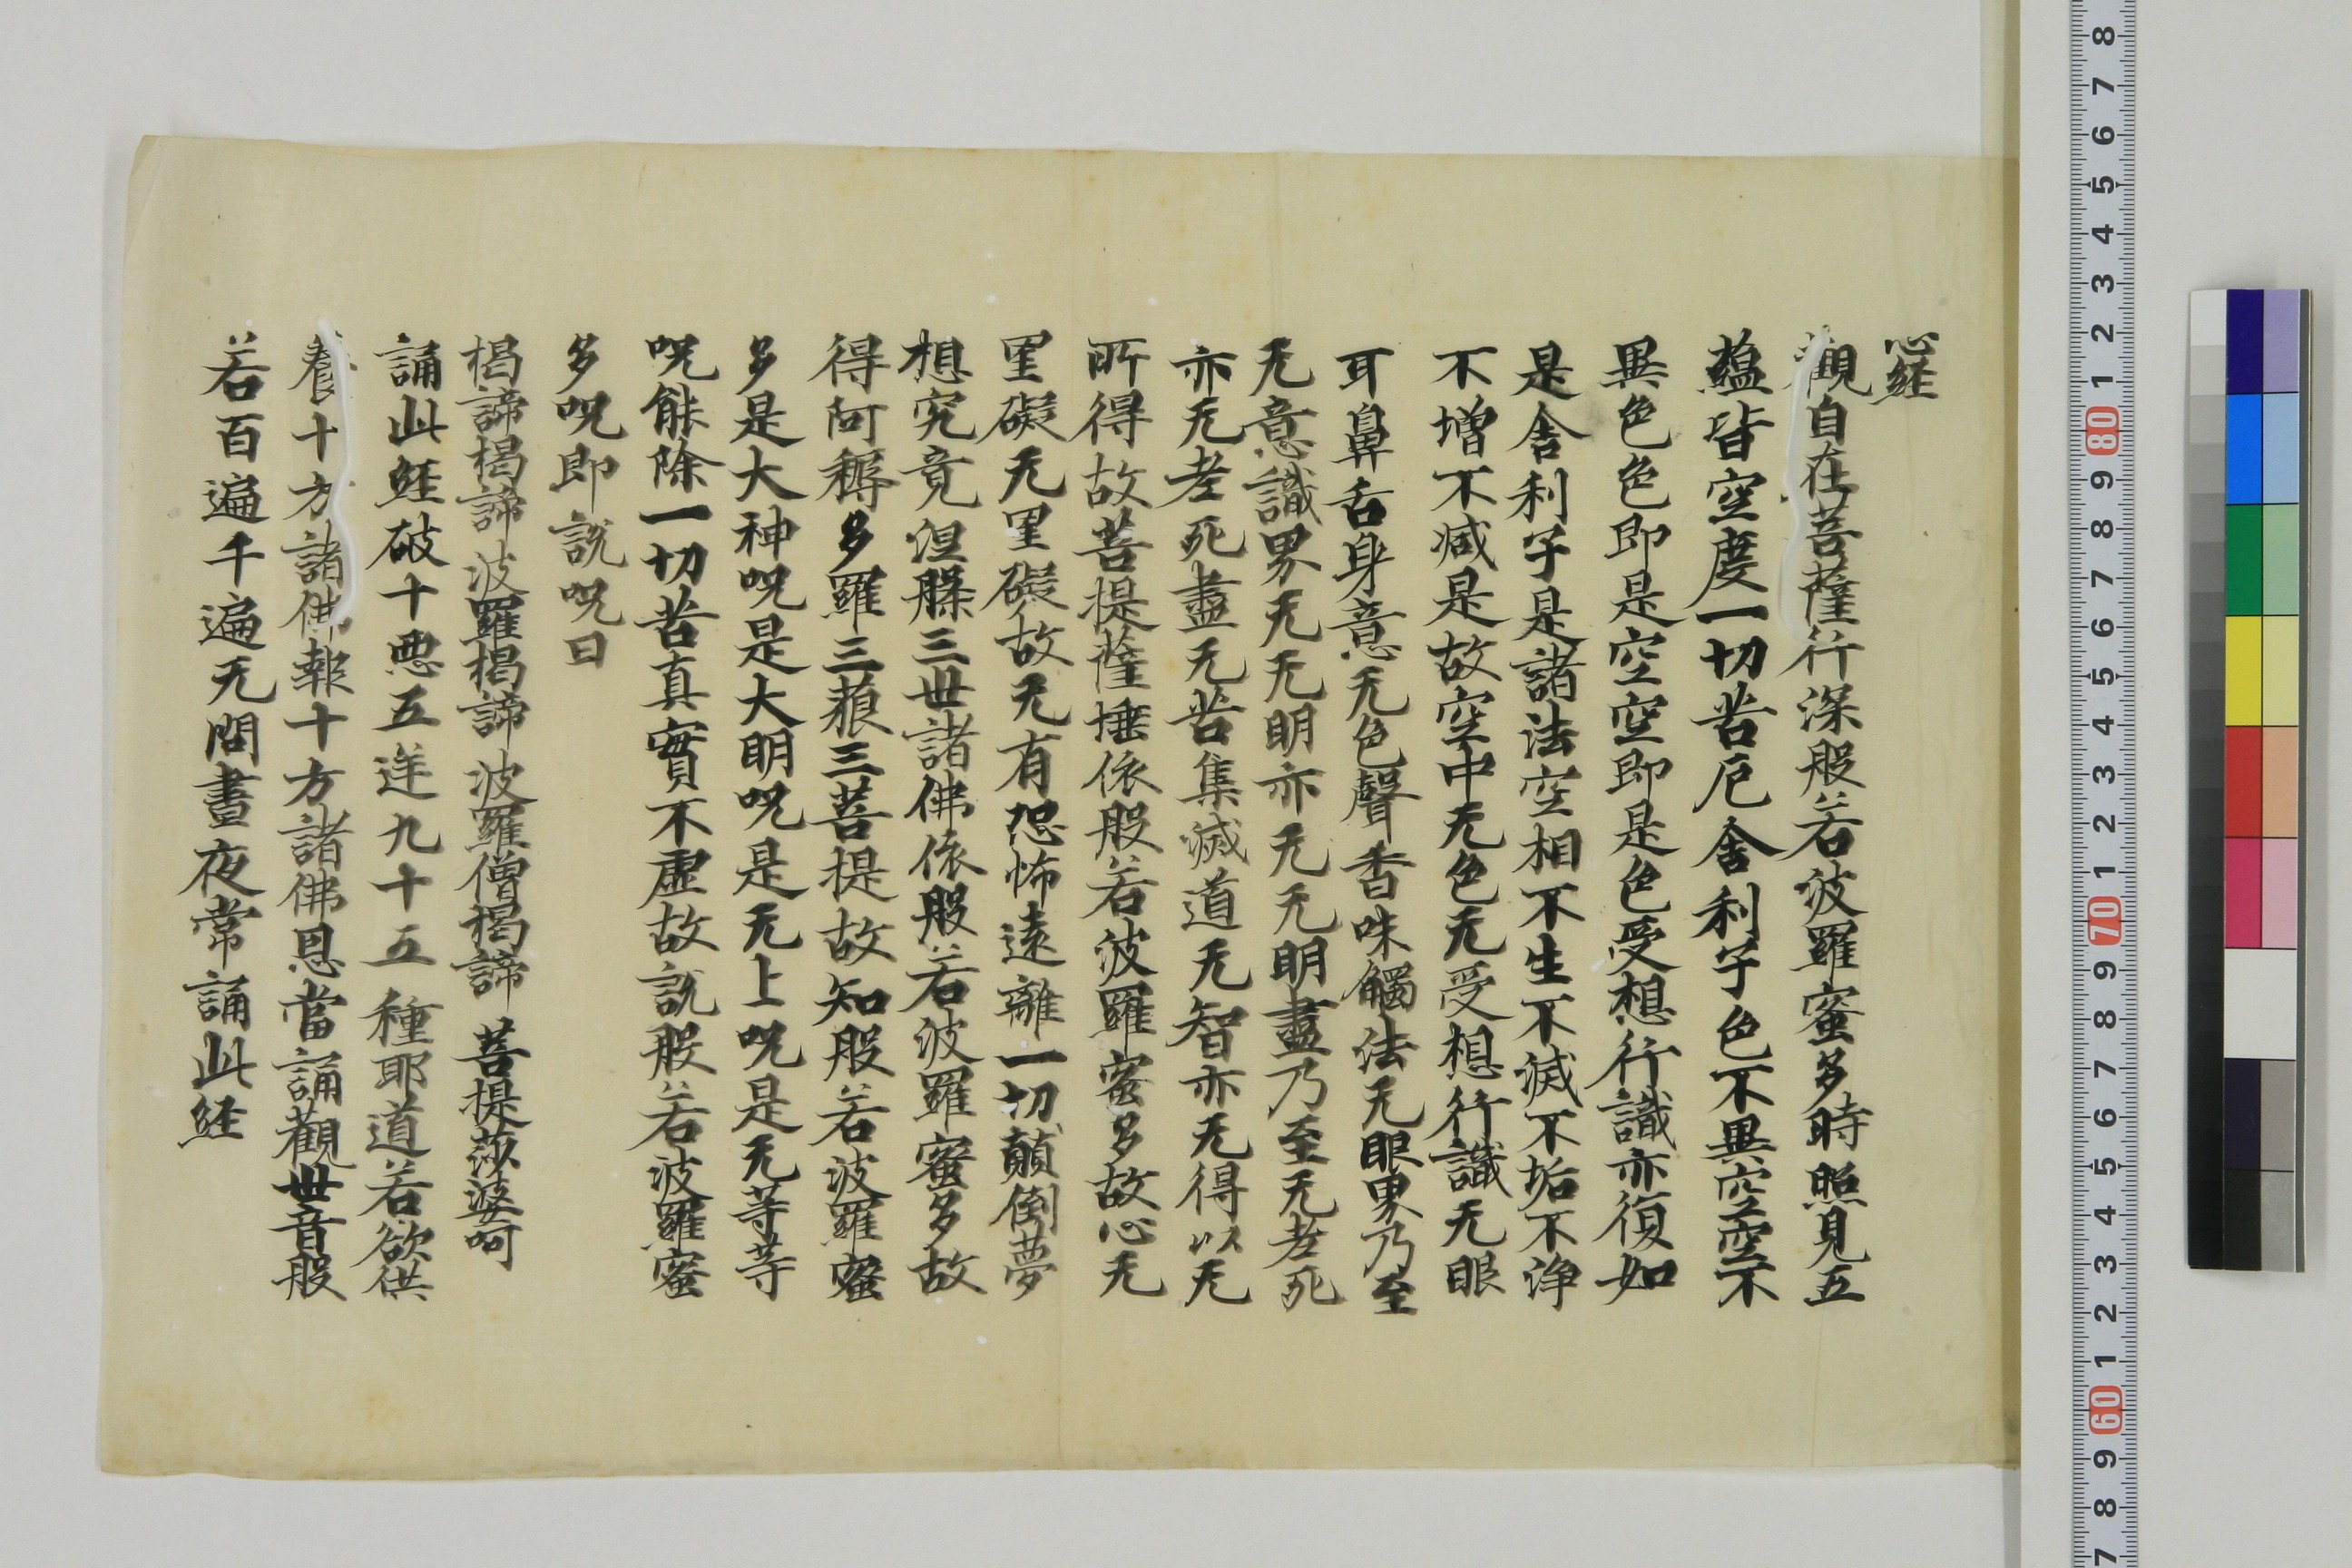 心経
觀自在菩薩行深般若波羅蜜多時照見五
蘊皆空度一切苦厄舎利子色不異空空不
異色色即是空空即是色受想行識亦復如
是舎利子是諸法空相不生不滅不垢不浄
不増不减是故空中无色无受想行識无眼
耳鼻舌身意无色聲香味觸法无眼界乃至
无意識界无无明亦无无明盡乃至无老死
亦无老死盡无苦集滅道无智亦无得以无
所得故菩提薩埵依般若波羅蜜多故心无
罣礙无罣礙故无有恐怖遠離一切顛倒夢
想究竟涅槃三世諸佛依般若波羅蜜多故
得阿耨多羅三藐三菩提故知般若波羅蜜
多是大神呪是大明呪是无上呪是无等等
呪能除一切苦真實不虚故説般若波羅蜜
多呪即説呪曰
楬諦楬諦波羅楬諦波羅僧楬諦菩提莎婆呵
誦此経破十悪五逆九十五種耶道若欲供
養十方諸佛報十方諸佛恩當誦觀世音般
若百遍千遍无間晝夜常誦此経
8 7 6 5 4 3 2 1 80 9 8 7 6 5 4 3 2 1 70 9 8 7 6 5 4 3 2 1 60 9 8 7